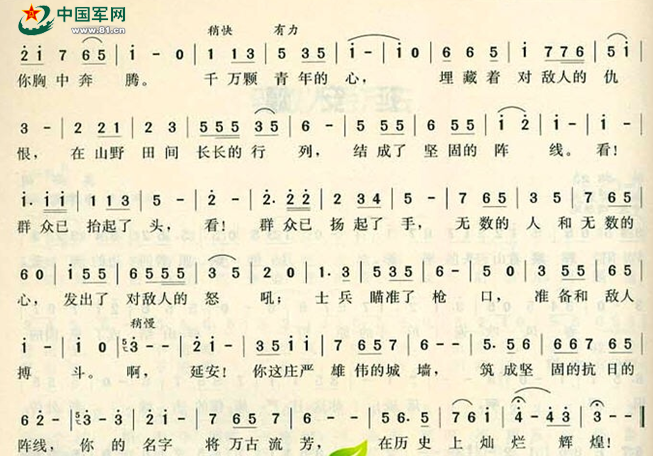 中国军网
www.81.cn
稍快 有力
2 i 7 6 5 | i - 0 | 1 1 3 | 5 3 5 | i - | i 0 | 6 6 5 | i 7 7 6 | 5 i |
你胸中奔 腾。 千万颗 青年的 心, 埋藏着 对敌人的 仇
3 - | 2 2 1 | 2 3 | 5 5 5 3 5 | i - | 5 - 5 5 | 6 5 | 2 - | i - | i - |
恨, 在山野 田间 长长的行 列, 结成了 坚固的 阵 线。看!
i. i i | 1 1 3 | 5 - | 2 - | 2. 2 2 | 2 3 4 | 5 - | 7 6 5 | 3 5 | 7 6 5 |
群众已 抬起了 头, 看! 群众已 扬起了 手, 无数的 人和 无数的
6 0 | i 5 5 | 6 5 5 5 | 3 5 | 2 0 | 1. 3 | 5 3 5 | 6 - | 5 0 | 3 5 0 | 7 6 5 |
心, 发出了 对敌人的 怒 吼; 士兵 瞄准了 枪 口, 准备和 敌人
稍慢
i - | i 0 | 3 - - | 2. i - | 3 5 i i | 7. 6 5 | 5 - - | 5. 5 6 | 6 6 7 6 5 |
搏 斗。 啊, 延安! 你这庄严 雄伟的城 墙, 筑成坚 固的抗日的
6 2 - | 3 - 3 | 2. i - | 7 6 5 7 | 6 - - | 5 6. 5 | 7 6 i | 4 - 4 3 | 3 - - |
阵线, 你 的 名字 将万古流 芳, 在历史 上灿 烂 辉 煌!